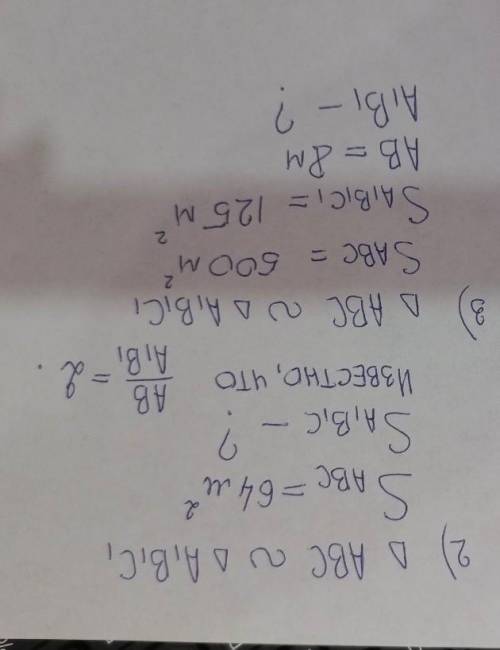 2) △ ABC ∾ △ A₁B₁C₁
S ABC = 64 м²
S A₁B₁C - ?
ИЗВЕСТНО, ЧТО AB/A₁B₁ = 2.
3) △ ABC ∾ △ A₁B₁C₁
S ABC = 500 м²
S A₁B₁C₁ = 125 м²
AB = 8м
A₁B₁ - ?